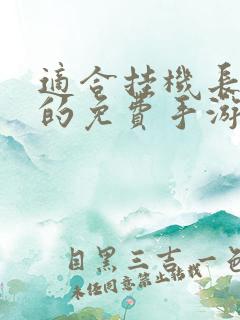 適合挂機長
的免費手游
目黑三吉一色
未经同意禁止转载